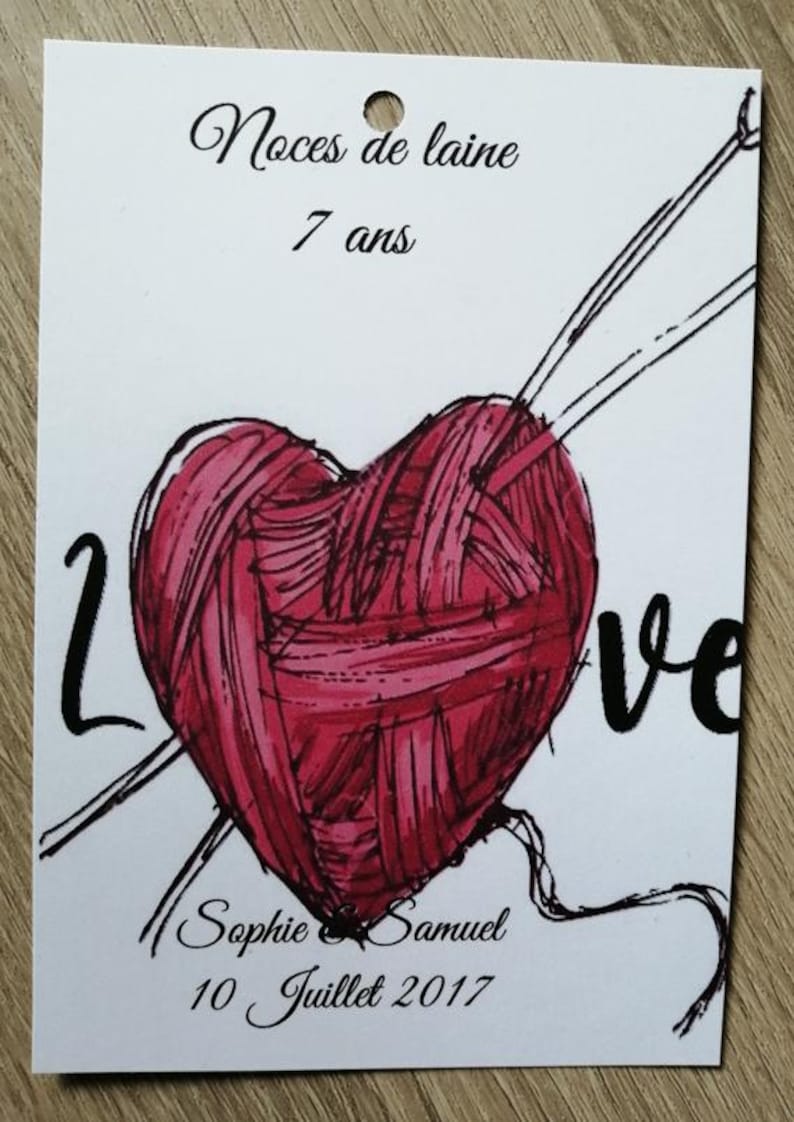 Noces de laine
7 ans
Love
Sophie & Samuel
10 Juillet 2017